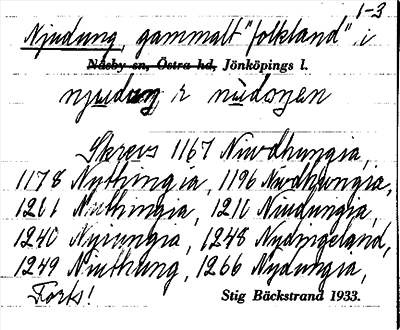 1-3
Njudung, gammalt "folkland" i
Näsby sn, Östra hd, Jönköpings l.
njuduŋ r nùdoŋen
Skrevs 1167 Niwdhungia,
1178 Nythingia, 1196 Nwdhwngia,
1201 Niuthingia, 1210 Niudungia,
1240 Nyiungia, 1248 Nydyngeland,
1249 Niuthung, 1266 Nydungia,
Forts!
Stig Bäckstrand 1933.